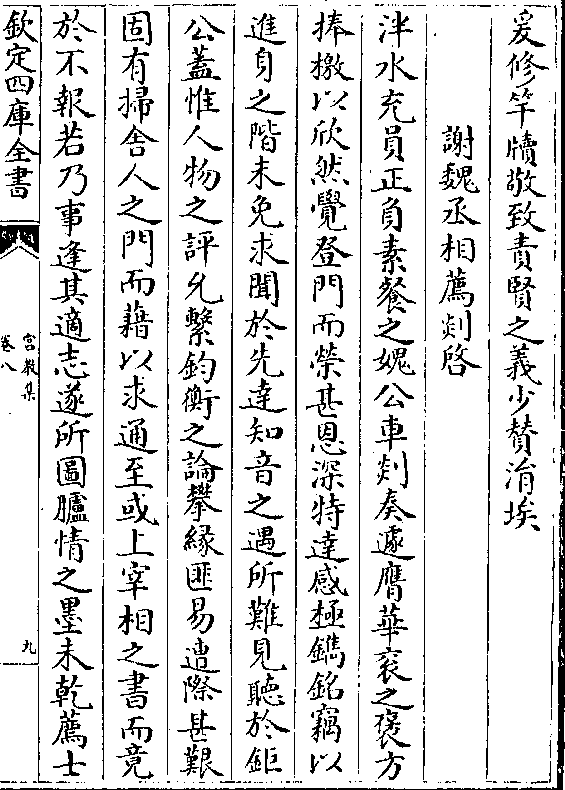 爰修竿牘敬致責賢之義少賛涓埃
謝魏丞相薦剡啓
泮水充員正負素餐之媿公車剡奏遽膺華衮之褒方
捧檄以欣然覺登門而榮甚恩深特達感極鐫銘竊以
進身之階未免求聞於先達知音之遇所難見聽於鉅
公蓋惟人物之評允繫鈞衡之論攀緣匪易遭際甚艱
固有掃舎人之門而藉以求通至或上宰相之書而竟
於不報若乃事逢其適志遂所圖臚情之墨未乾薦士
欽定四庫全書
宫教集
卷八
九